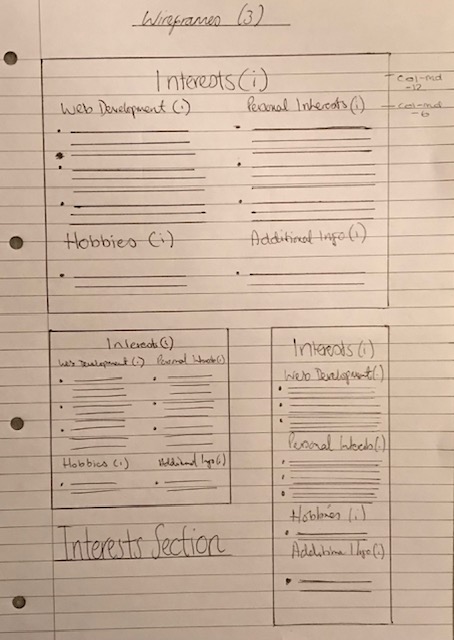 Wireframes (3)
Interests (i)
col-md
-12
Web Development (i) Personal Interests (i)
col-md
-6
Hobbies (i) Additional Info (i)
Interests (i)
Web Development (i) Personal (i)
Hobbies (i) Additional Info (i)
Interests (i)
Web Development (i)
Personal (i)
Hobbies (i)
Info (i)
Interests Section